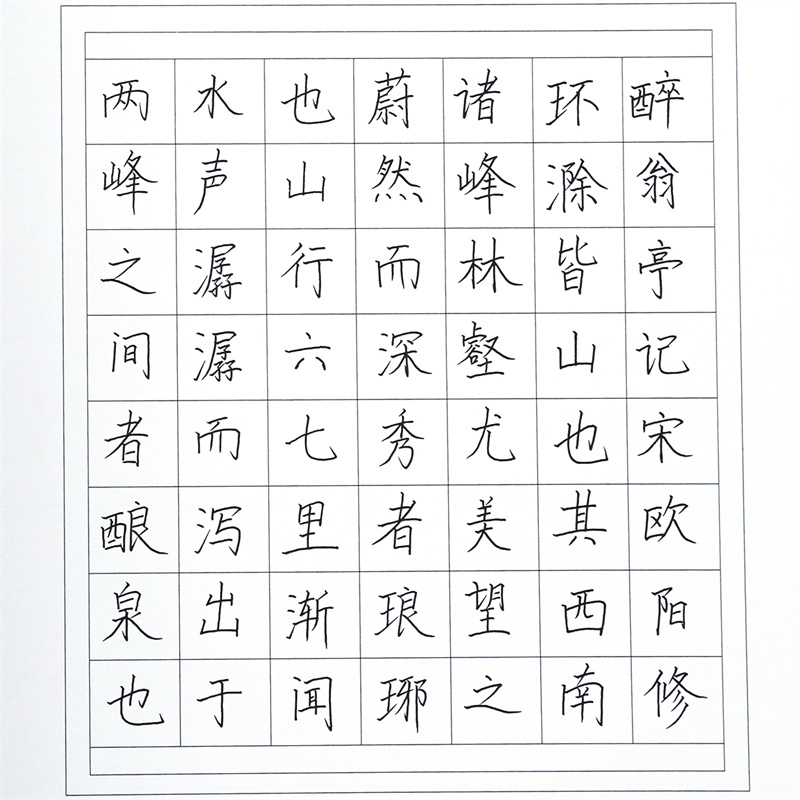 醉翁亭记宋欧阳修
环滁皆山也其西南
诸峰林壑尤美望之
蔚然而深秀者琅琊
也山行六七里渐闻
水声潺潺而泻出于
两峰之间者酿泉也